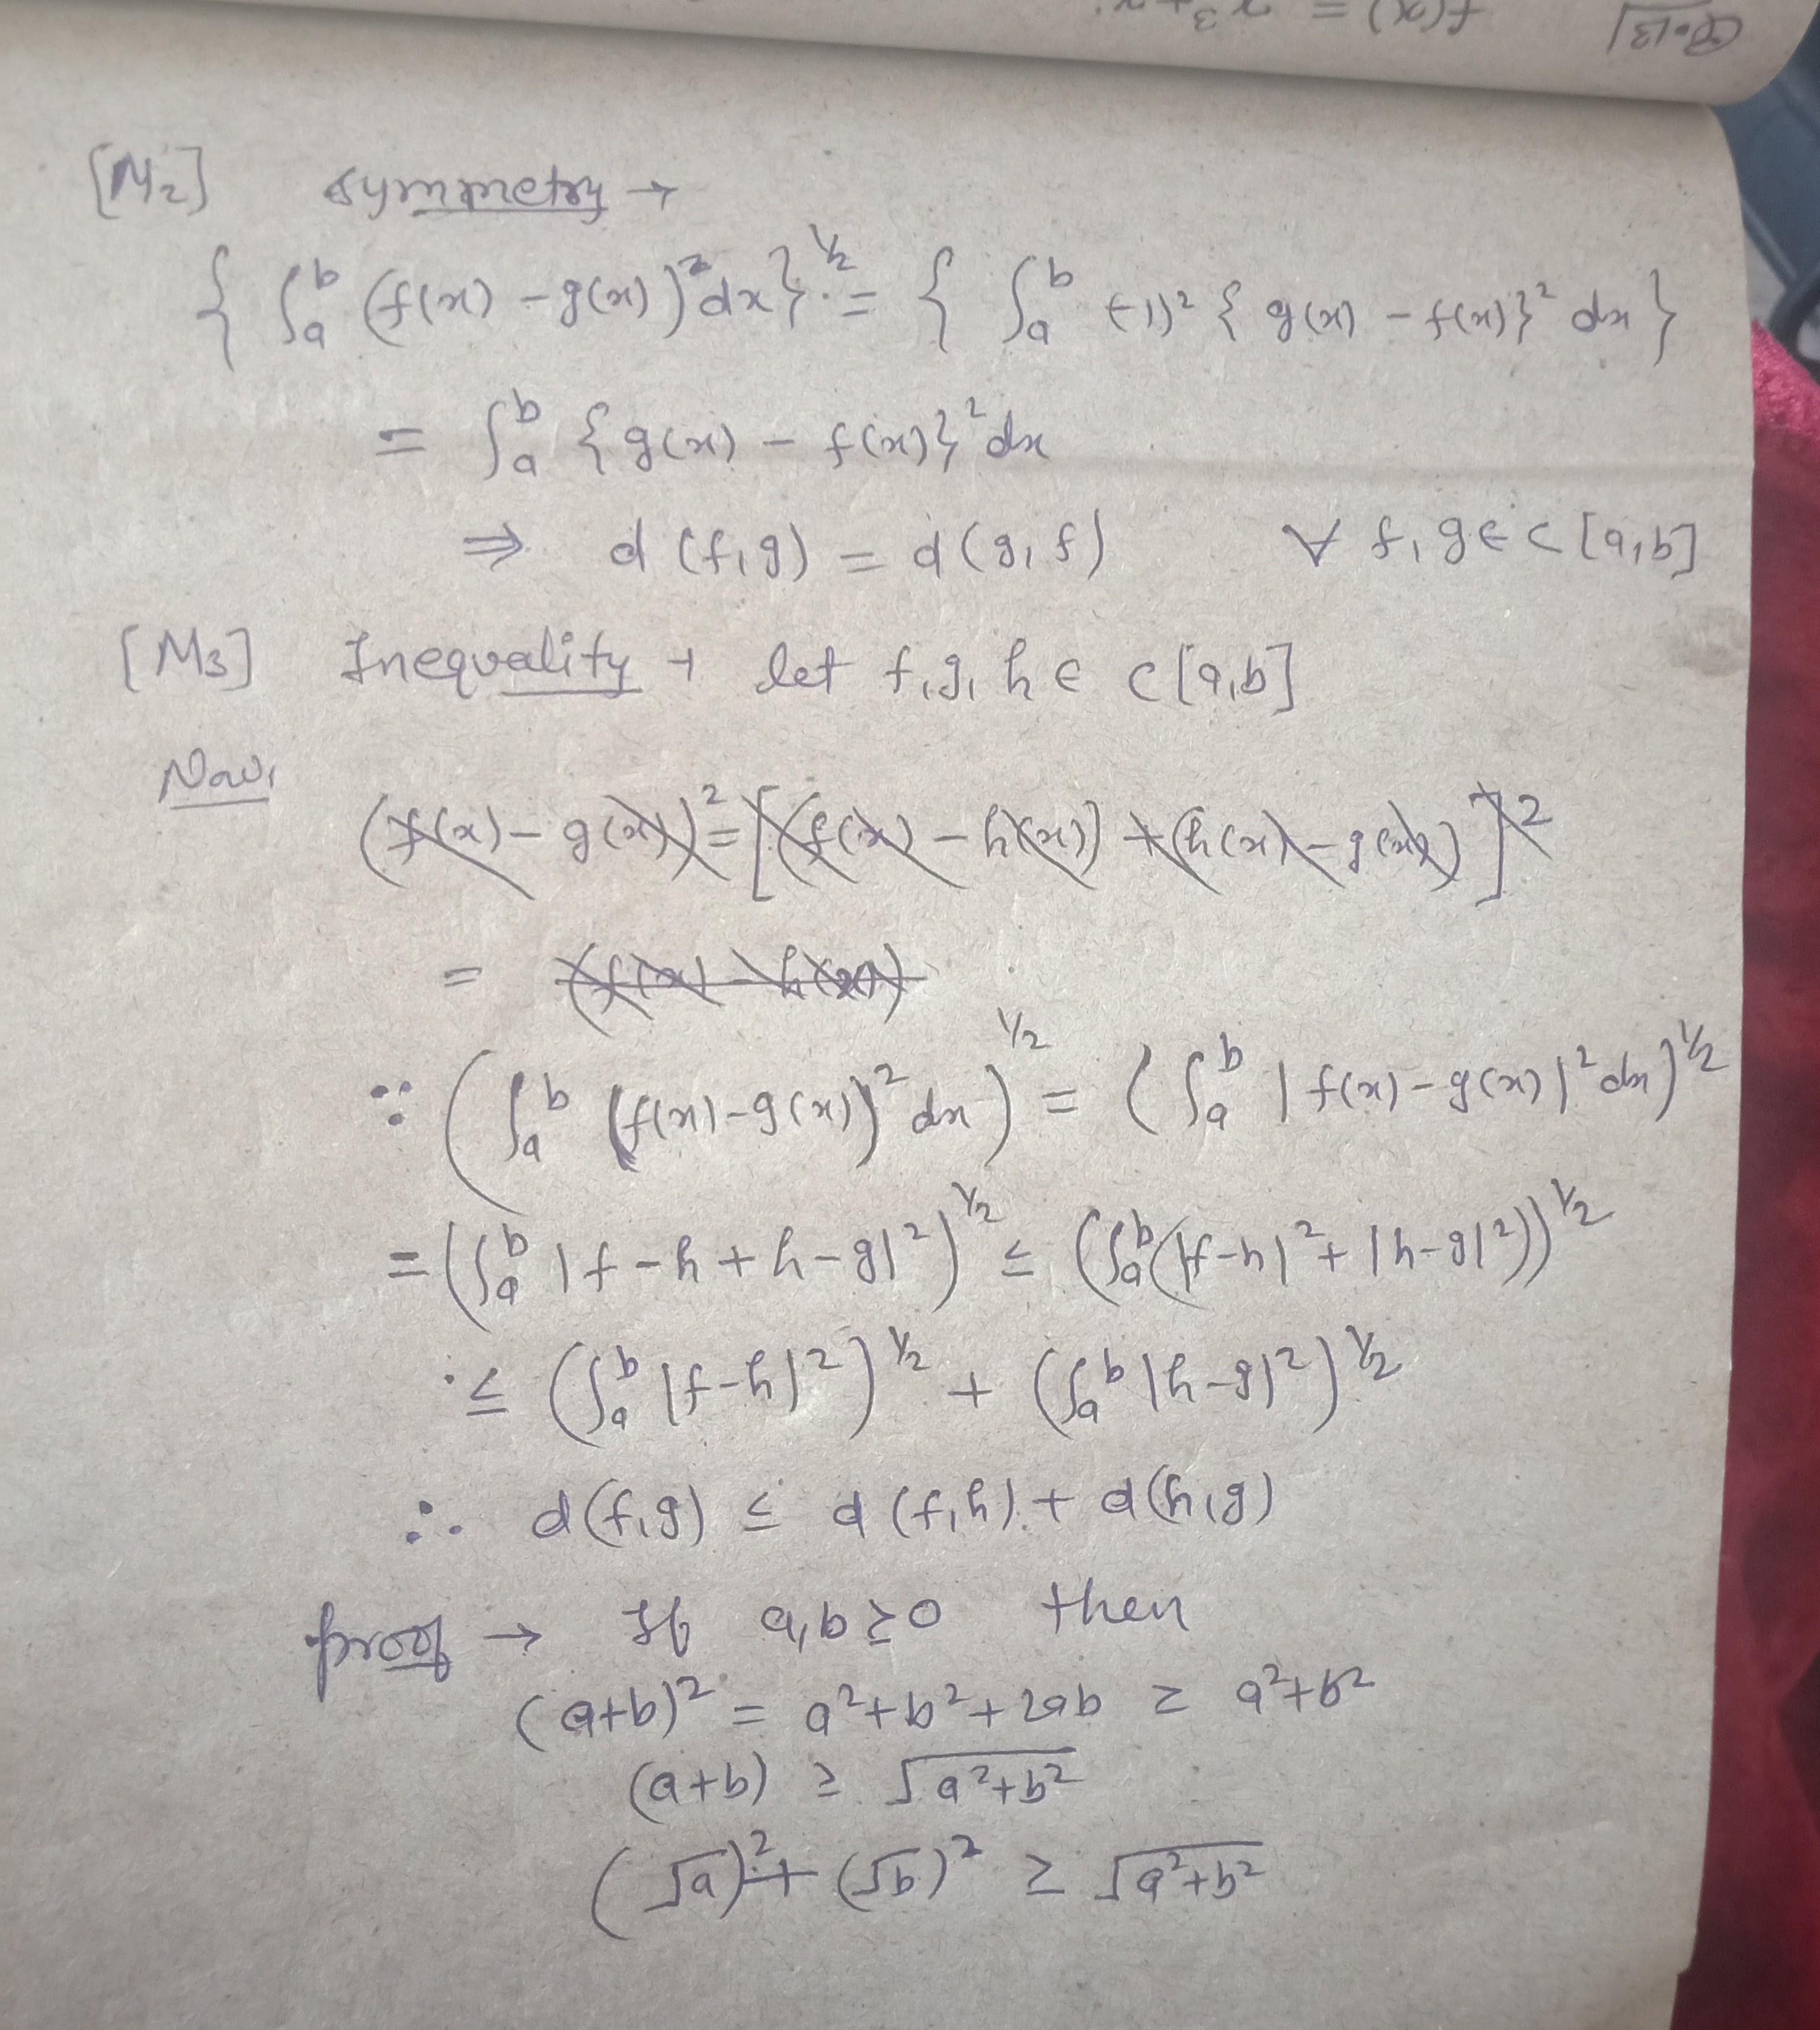 Q.13] f(x) = x³+x.
[M₂] Symmetry →
{ ∫ₐᵇ (f(x) - g(x))² dx }^½ = { ∫ₐᵇ (-1)² { g(x) - f(x)}² dx }
= ∫ₐᵇ { g(x) - f(x)}² dx
⇒ d (f,g) = d (g, f) ∀ f, g ∈ C [a,b]
[M₃] Inequality → let f,g, h ∈ C [a,b]
Now,
(f(x) - g(x))² = [(f(x) - h(x)) + (h(x) - g(x))]²
= (f(x) - h(x))
∵ ( ∫ₐᵇ (f(x) - g(x))² dx )^½ = ( ∫ₐᵇ | f(x) - g(x) |² dx )^½
= ( ∫ₐᵇ | f - h + h - g|² )^½ ≤ ( ∫ₐᵇ (|f-h|² + |h-g|²))^½
≤ ( ∫ₐᵇ |f-h|² )^½ + ( ∫ₐᵇ |h-g|² )^½
∴ d(f,g) ≤ d (f,h) + d(h,g)
proof → If a,b ≥ 0 then
(a+b)² = a²+b²+2ab ≥ a²+b²
(a+b) ≥ √a²+b²
(√a)² + (√b)² ≥ √a²+b²